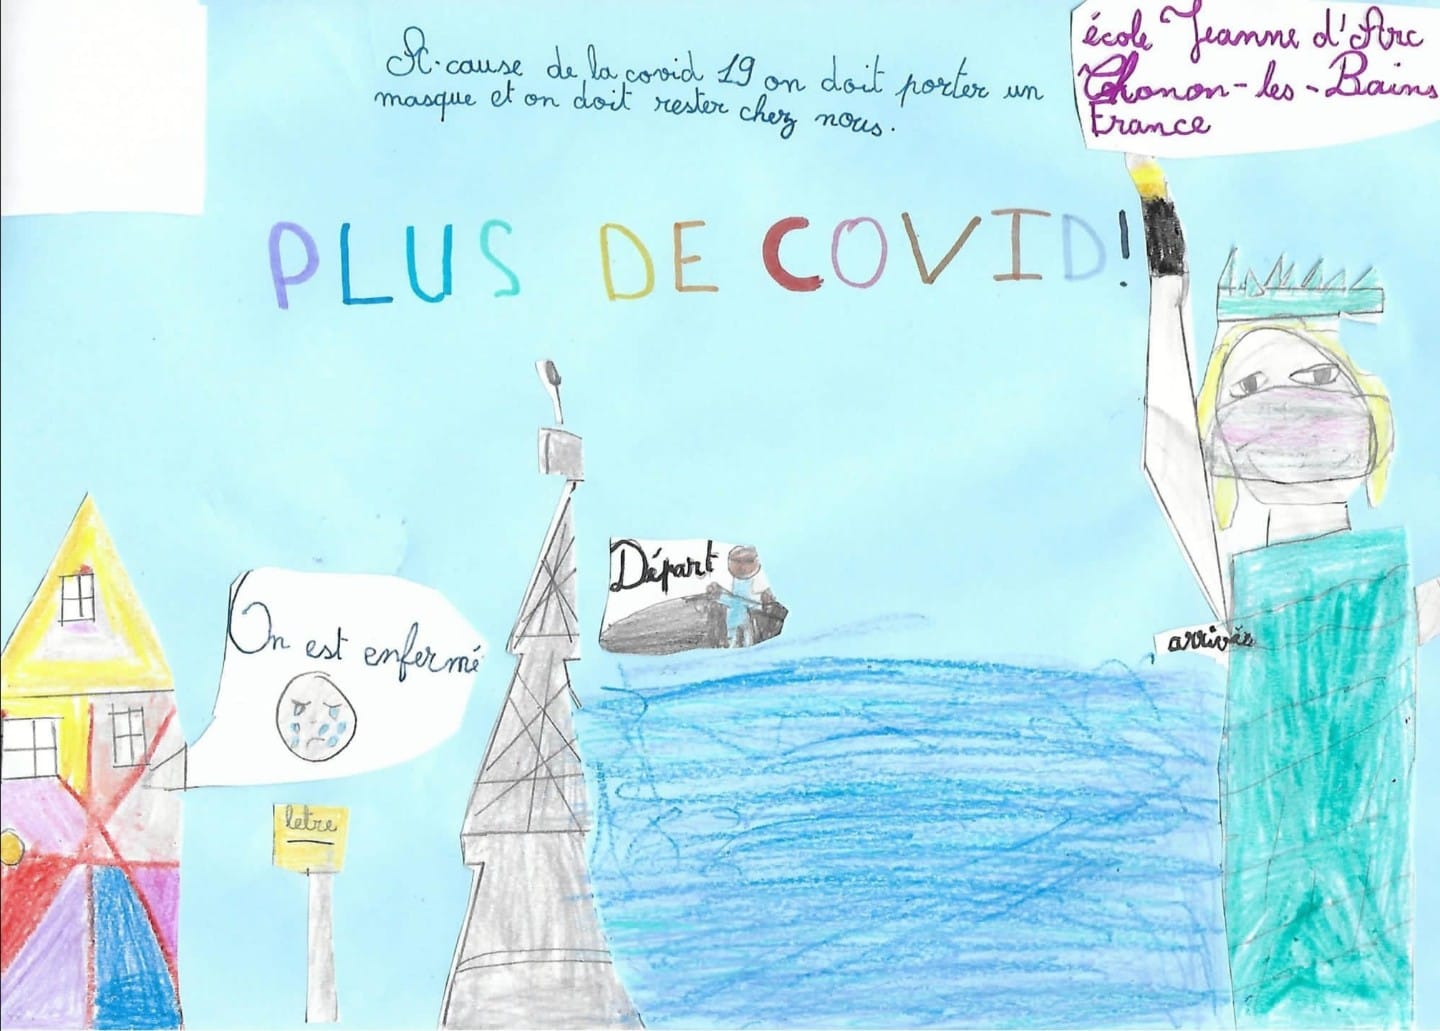 A cause de la covid 19 on doit porter un
masque et on doit rester chez nous.
école Jeanne d'Arc
Thonon-les-Bains
France
PLUS DE COVID!
Départ
On est enfermé
arrivée
letre